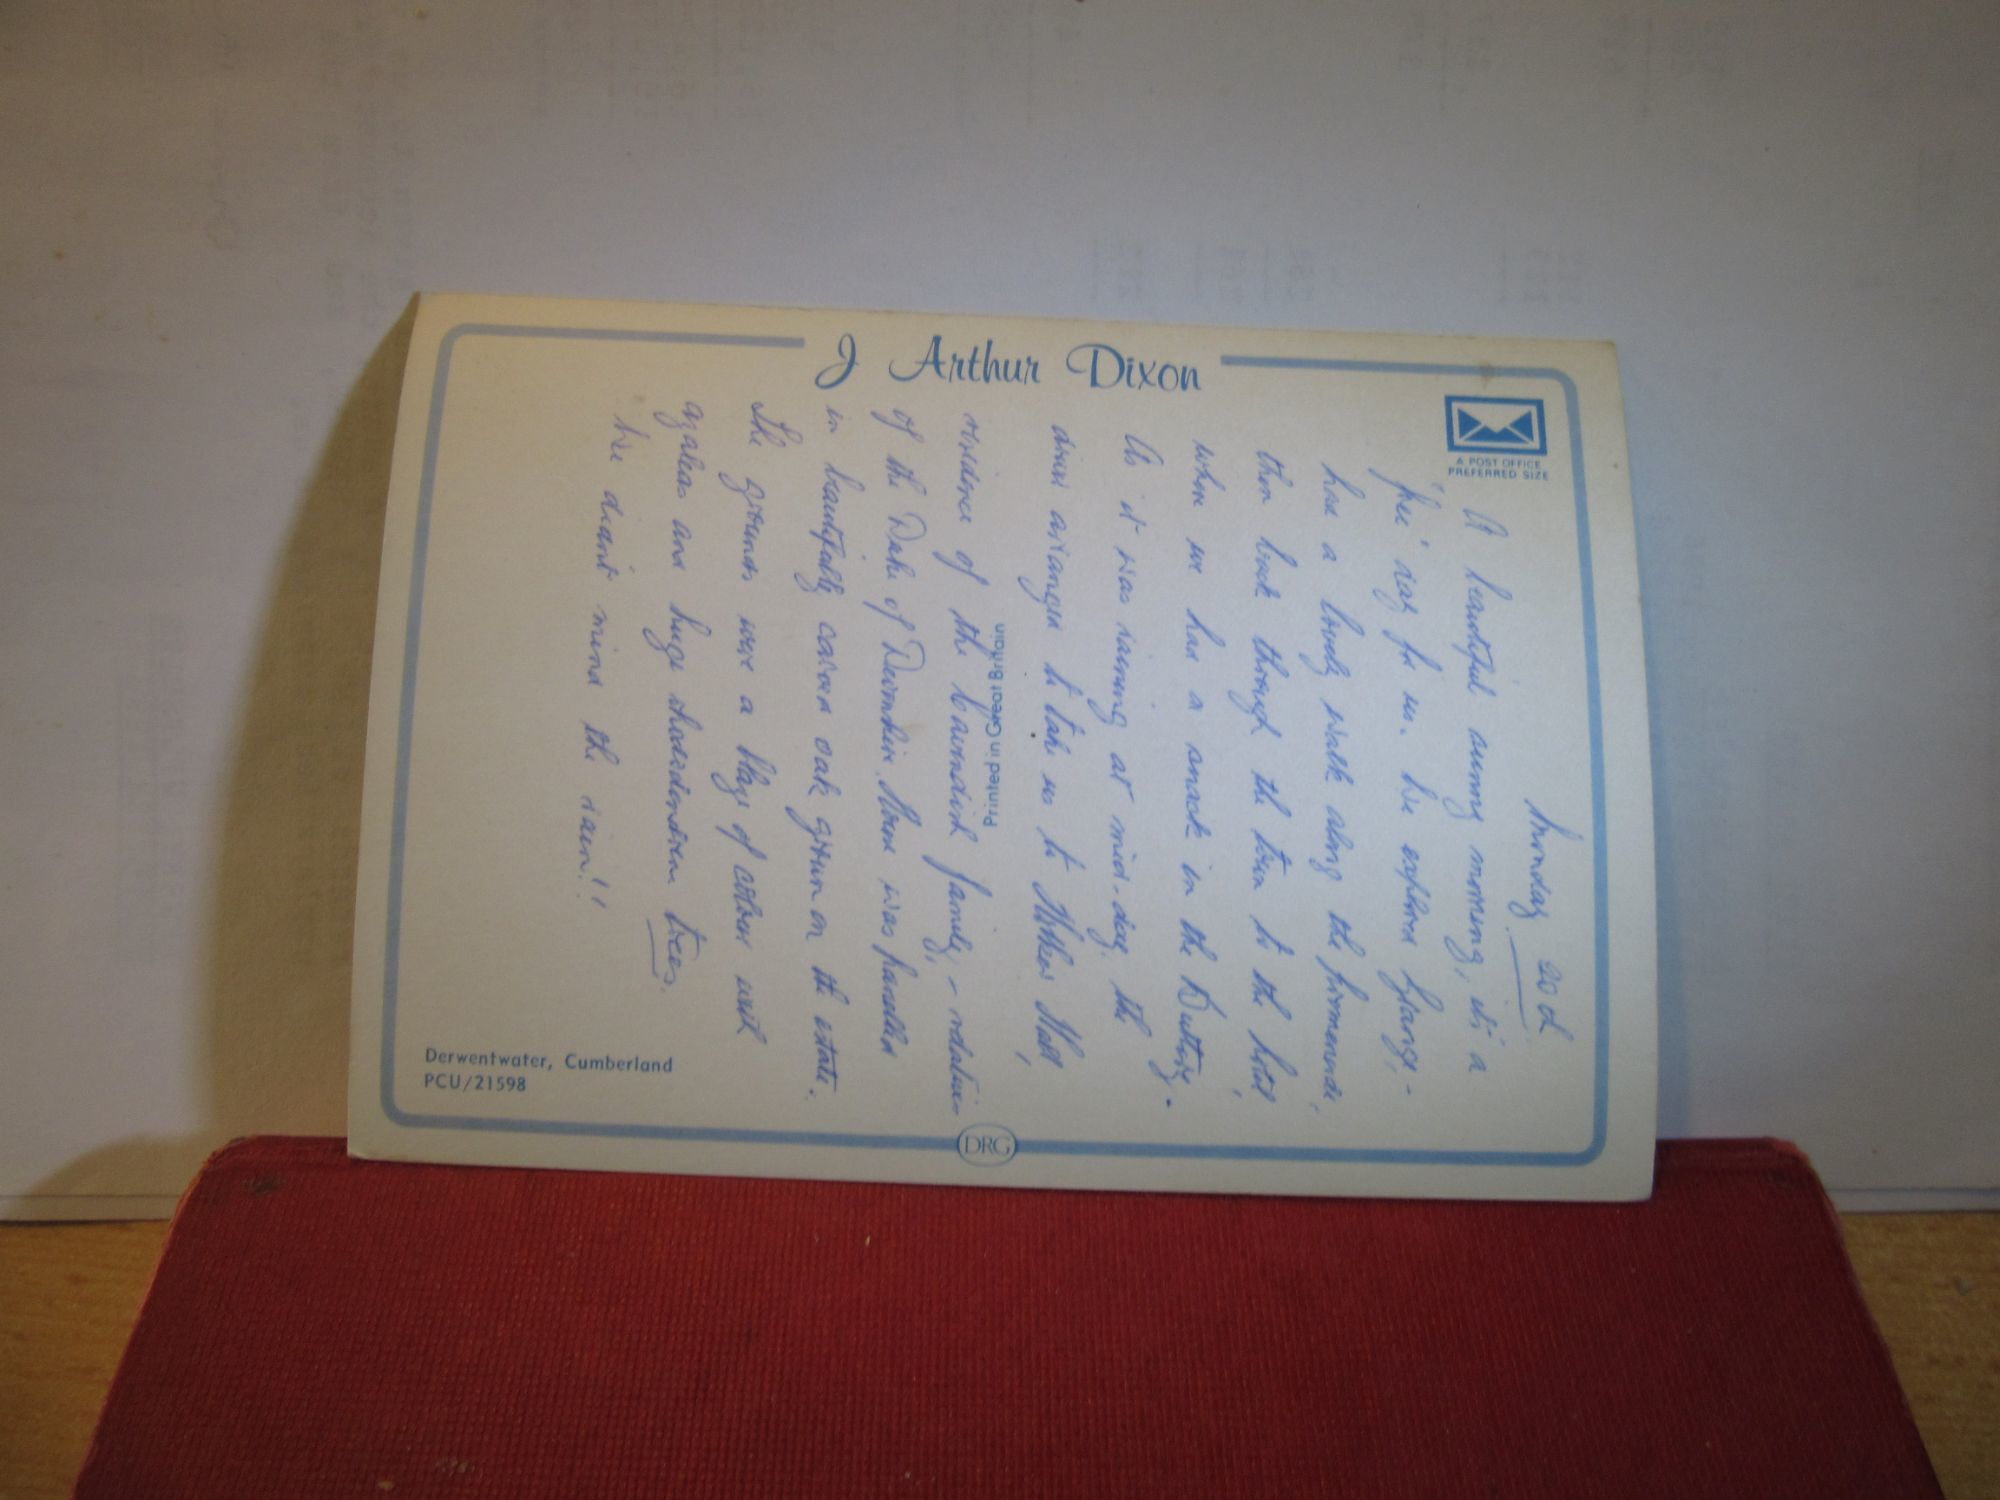 J Arthur Dixon
A POST OFFICE
PREFERRED SIZE
Monday 20th
A beautiful sunny morning, it's a
'free' day for us. We explored Grange,-
had a lovely walk along the promenade,
then back through the town to the hotel,
where we had a snack in the Buttery.
As it was raining at mid-day, the
driver arranged to take us to Holker Hall,
residence of the Cavendish family, - relatives
of the Duke of Devonshire. House was panelled
in beautifully carved oak grown on the estate.
The grounds were a blaze of colour with
azaleas and huge rhododendron trees.
We didn't mind the rain!!
Printed in Great Britain
Derwentwater, Cumberland
PCU/21598
DRG